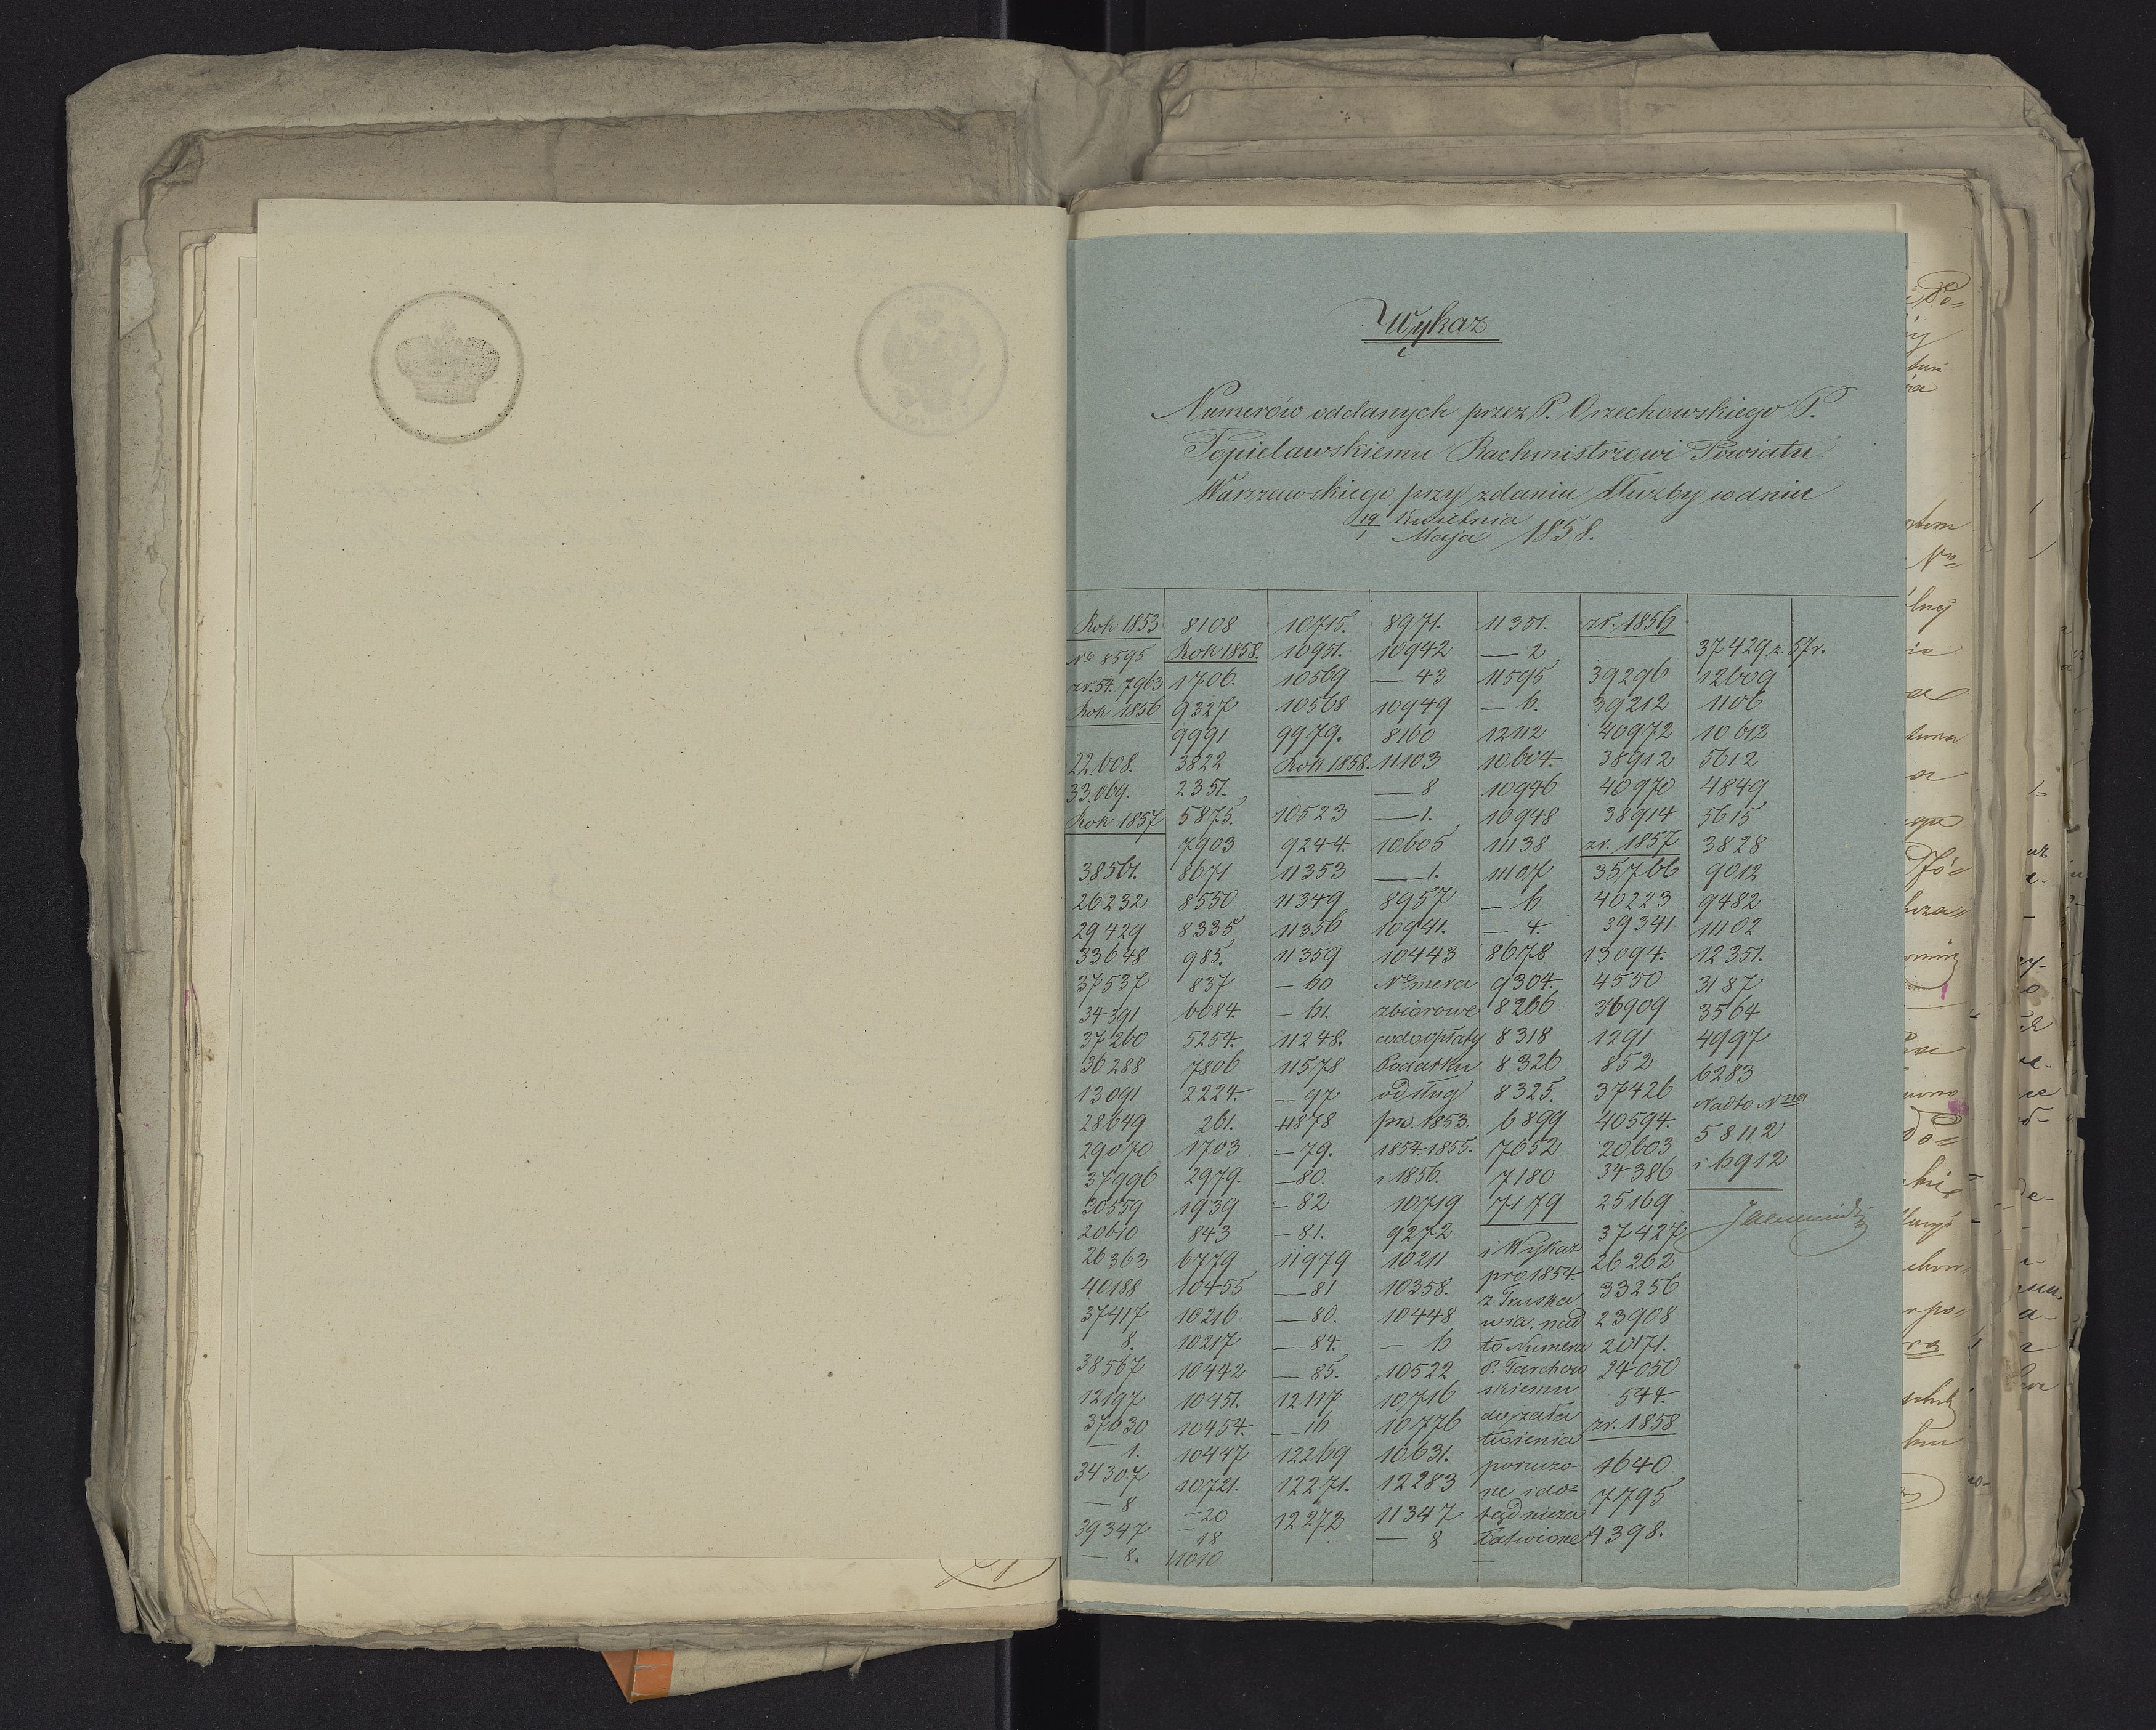 Wykaz
Numerów oddanych przez P. Orzechowskiego P.
Popielawskiemu Rachmistrzowi Powiatu
Warszawskiego przy zdaniu służby w dniu
19/1 Kwietnia
Maja 1858.
Rok 1853
No 8595
zr. 54. 7963
Rok 1856
22.608.
33.069.
Rok 1857
38561.
26232
29429
33648
37537
34391
37260
36288
13091
28649
29070
37996
30559
20610
26363
40188
37417
8.
38567
12197
37030
— 1.
34307
— 8
39347
— 8.
8108
Rok 1858.
1706.
9327
9991
3822
2351.
5875.
7903
8671
8550
8335
985.
837
6684.
5254.
7806
2224.
261.
1703
2979.
1939
843
6779
10455
10216
10217
10442
10451.
10454.
10447
10721.
— 20
— 18
11010
10715.
10951.
10569
10568
9979.
Rok 1858.
10523
9244.
11353
11349
11356
11359
— 60
— 61.
11248.
11578
— 97
11878
— 79.
— 80.
— 82
— 81.
11979
— 81
— 80.
— 84.
— 85.
12117
— 16
12269
12271.
12272
8971.
10942
— 43
10949
8160
11103
— 8
— 1.
10605
— 1.
8957
10941.
10443
Numera
zbiorowe
codo opłaty
Podatku
od sług
pro. 1853.
1854. 1855.
i 1856.
10719
9272
10211
10358.
10448
— 6
10522
10716
10776
10631.
12283
11347
— 8
11351.
— 2
11595
— 6.
12112
10604.
10946
10948
11138
11107
— 6
— 4.
8678
9304.
8266
8318
8326
8325.
6899
7652
7180
7179
i Wykaz
pro 1854.
z Truska
wia, nad
to Numera
P. Tarchow
skiemu
do zała
twienia
poruczo-
ne i do-
tąd nieza
łatwione
zr. 1856
39296
39212
40972
38912
40970
38914
zr. 1857
35766
40223
39341
13094.
4550
36909
1291
852
37426
40594.
20603
34386
25169
37427
26262
33256
23908
20171.
24050
544.
zr. 1858
1640
7795
4398.
37429 z. 57r.
12609
1106
10612
5612
4849
5615
3828
9012
9482
11102
12351.
3187
3564
4997
6283
Nadto Nra
58112
i 6912